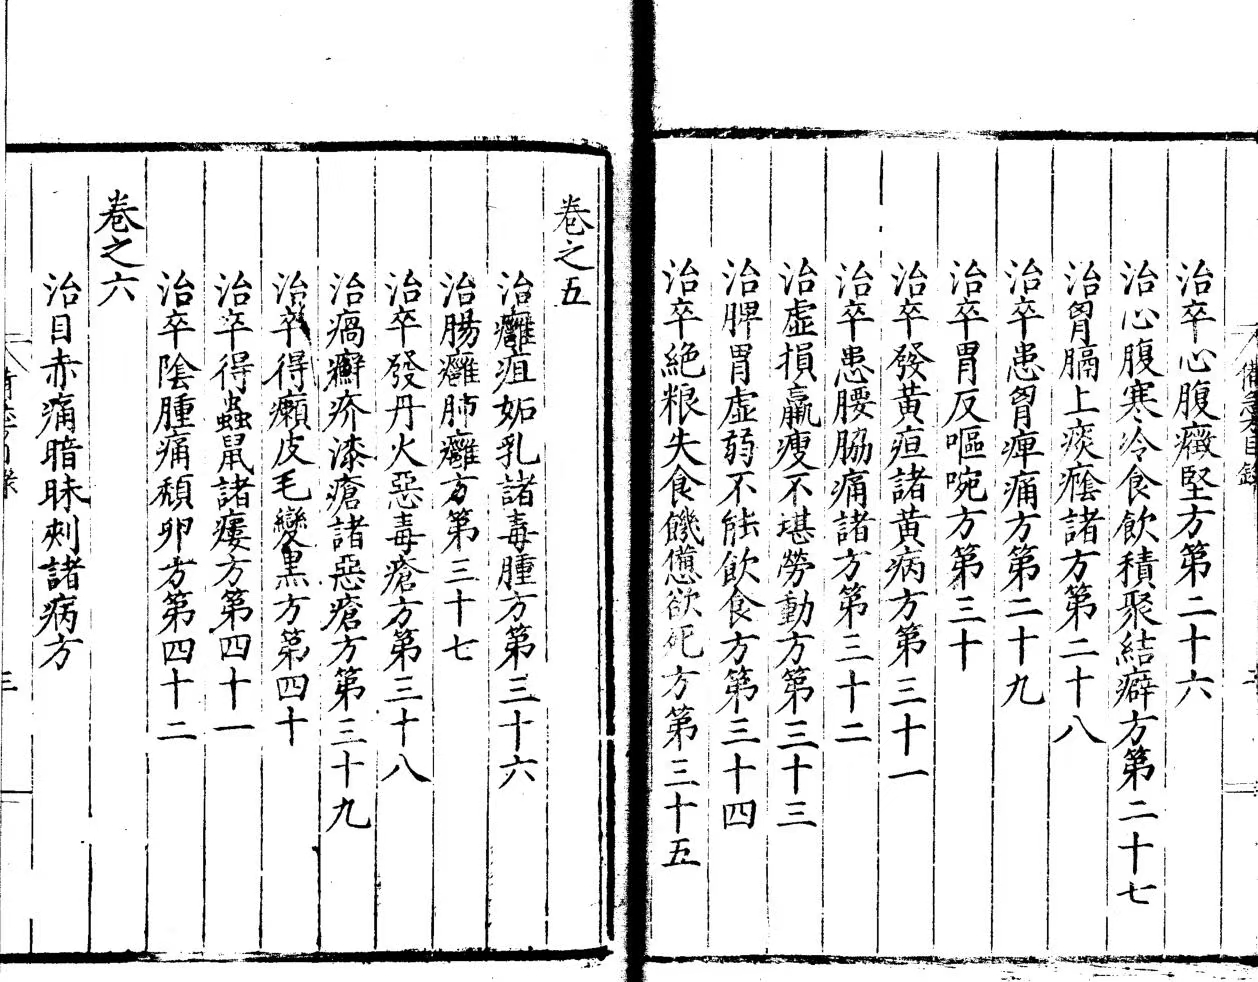 治卒心腹癥堅方第二十六
治心腹寒冷食飲積聚結癖方第二十七
治胷膈上痰癊諸方第二十八
治卒患胷痺痛方第二十九
治卒胃反嘔啘方第三十
治卒發黃疸諸黃病方第三十一
治卒患腰脇痛諸方第三十二
治虛損羸瘦不堪勞動方第三十三
治脾胃虛弱不能飲食方第三十四
治卒絕粮失食饑憊欲死方第三十五
卷之五
治癰疽妬乳諸毒腫方第三十六
治腸癰肺癰方第三十七
治卒發丹火惡毒瘡方第三十八
治瘑癬疥漆瘡諸惡瘡方第三十九
治卒得癩皮毛變黑方第四十
治卒得蟲鼠諸瘻方第四十一
治卒陰腫痛㿉卵方第四十二
卷之六
治目赤痛暗昧刺諸病方